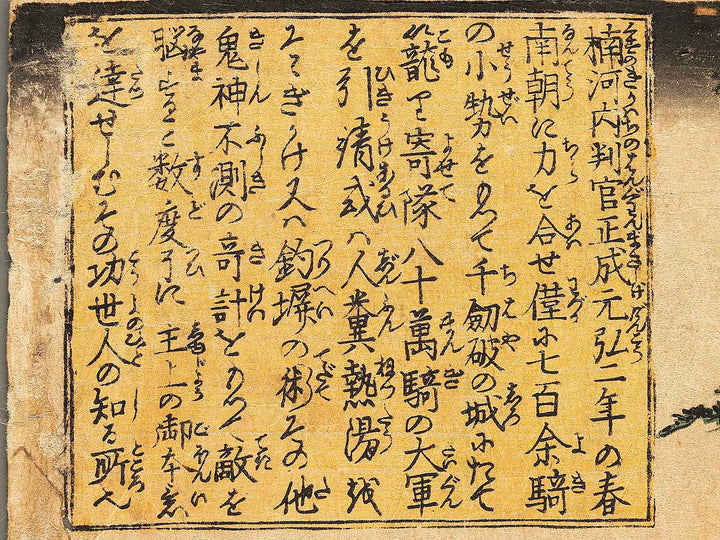 楠河内判官正成元弘二年の春
南朝に力を合せ僅に七百余騎
の小勢をもつて千劔破の城にたて
籠り寄隊八十萬騎の大軍
を引請或ハ人糞熱湯を
そゝぎかけ又ハ釣塀の術その他
鬼神不測の奇計をもつて敵を
脳すこと数度つひに主上の御本意
を達せしむその功世人の知る所也